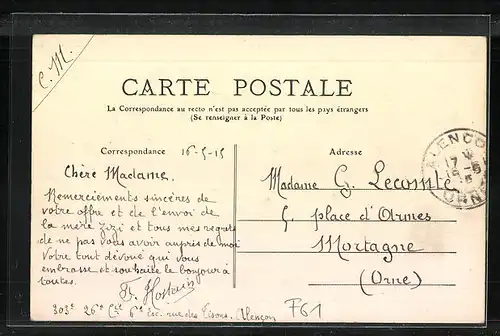 C. M.
CARTE POSTALE
La Correspondance au recto n'est pas acceptée par tous les pays étrangers
(Se renseigner à la Poste)
Correspondance 16-5-15
Adresse
ALENCON
17
ORNE
Chère Madame,
Remerciements sincères de
votre offre et de l'envoi de
la mère Zizi et tous mes regrets
de ne pas vous avoir auprès de moi
Votre tout dévoué qui vous
embrasse et souhaite le bonjour à
toutes.
Madame G. Lecomte
place d'Armes
Mortagne
(Orne)
303e 26e Cie 6e Esc. rue des Tisons. Alençon
F61